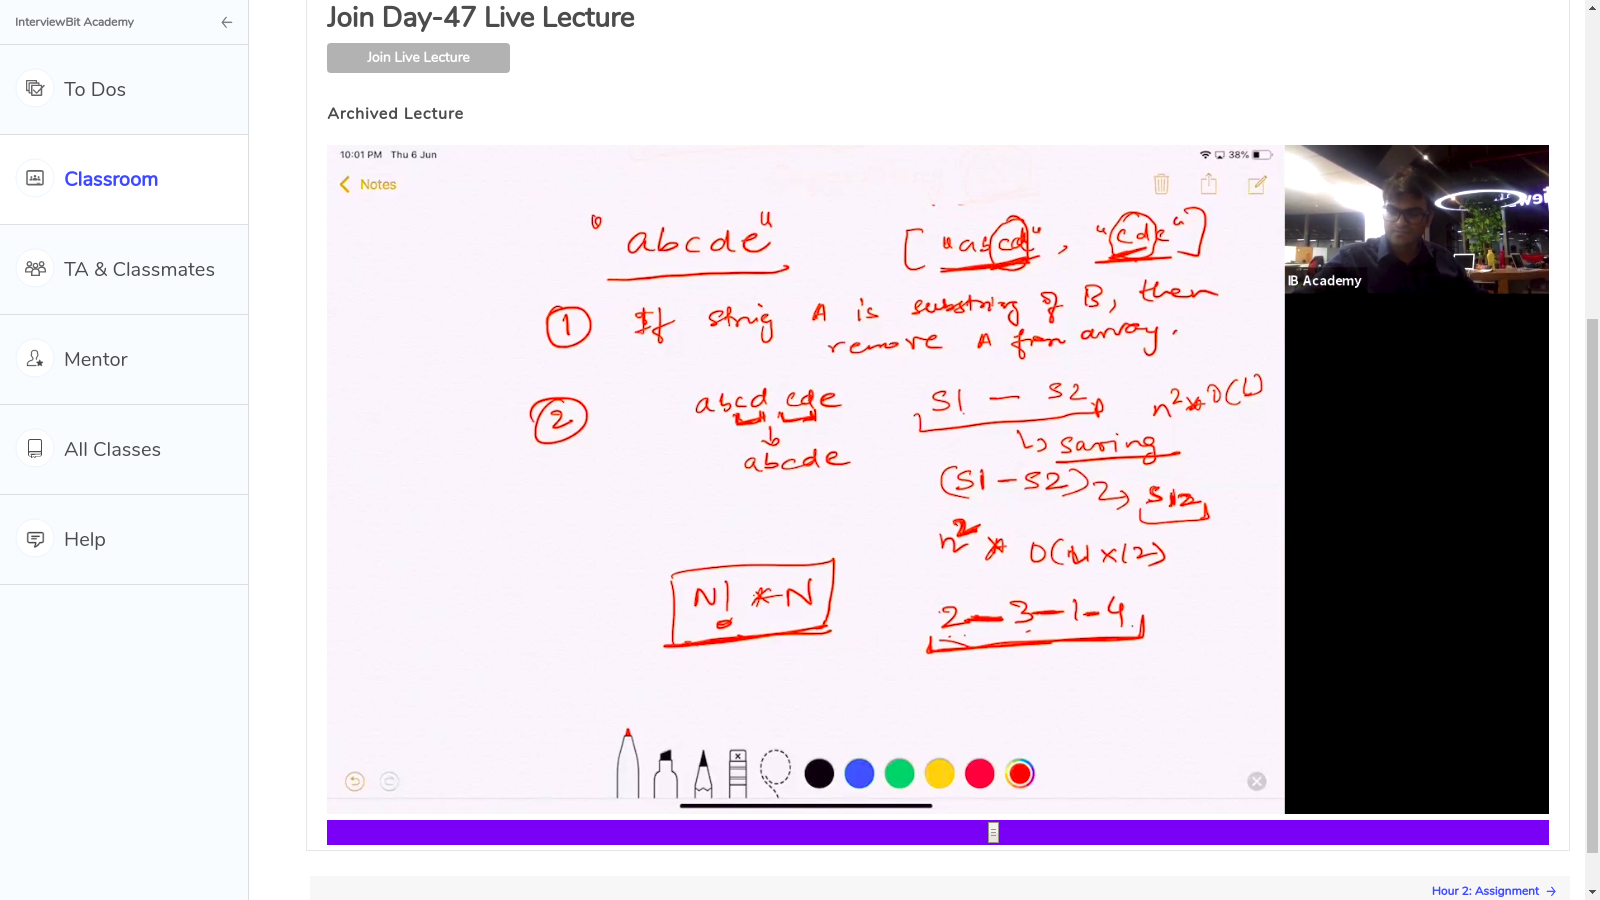 InterviewBit Academy
To Dos
Classroom
TA & Classmates
Mentor
All Classes
Help
Join Day-47 Live Lecture
Join Live Lecture
Archived Lecture
10:01 PM Thu 6 Jun
38%
Notes
"abcde"
["abcd", "cde"]
1 If string A is substring of B, then
remove A from array.
2
abcd cde
abcde
S1 — S2
n² * O(L)
↳ saving
(S1 - S2)
S12
n² * O(l1 x l2)
N! * N
2 — 3 — 1 - 4
IB Academy
Hour 2: Assignment →